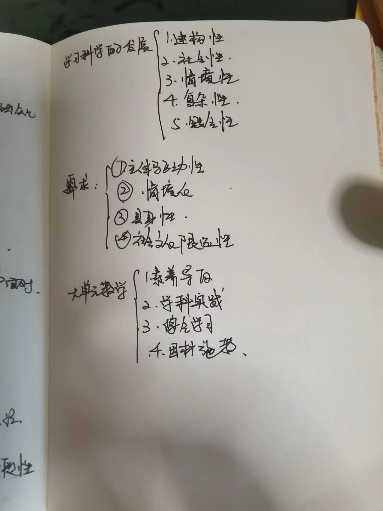 学习科学的发展
1.建构性
2.社会性.
3.情境性
4.复杂性.
5.
要求:
①主体互动性
②.情境化
③具身性.
④社会文化
大单元教学
1.素养导向
2.学科实践
3.综合学习
4.因材施考、